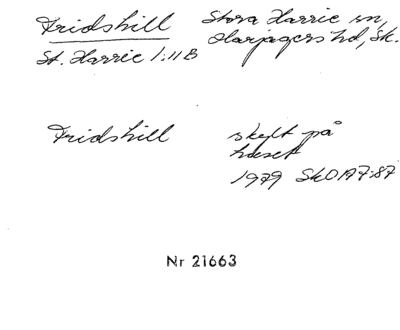 Fridshill
Stora Harrie sn,
St. Harrie 1:11B
Harjagers hd, Sk.
Fridshill
skylt på
huset
1979 SkOA 7:87
Nr 21663